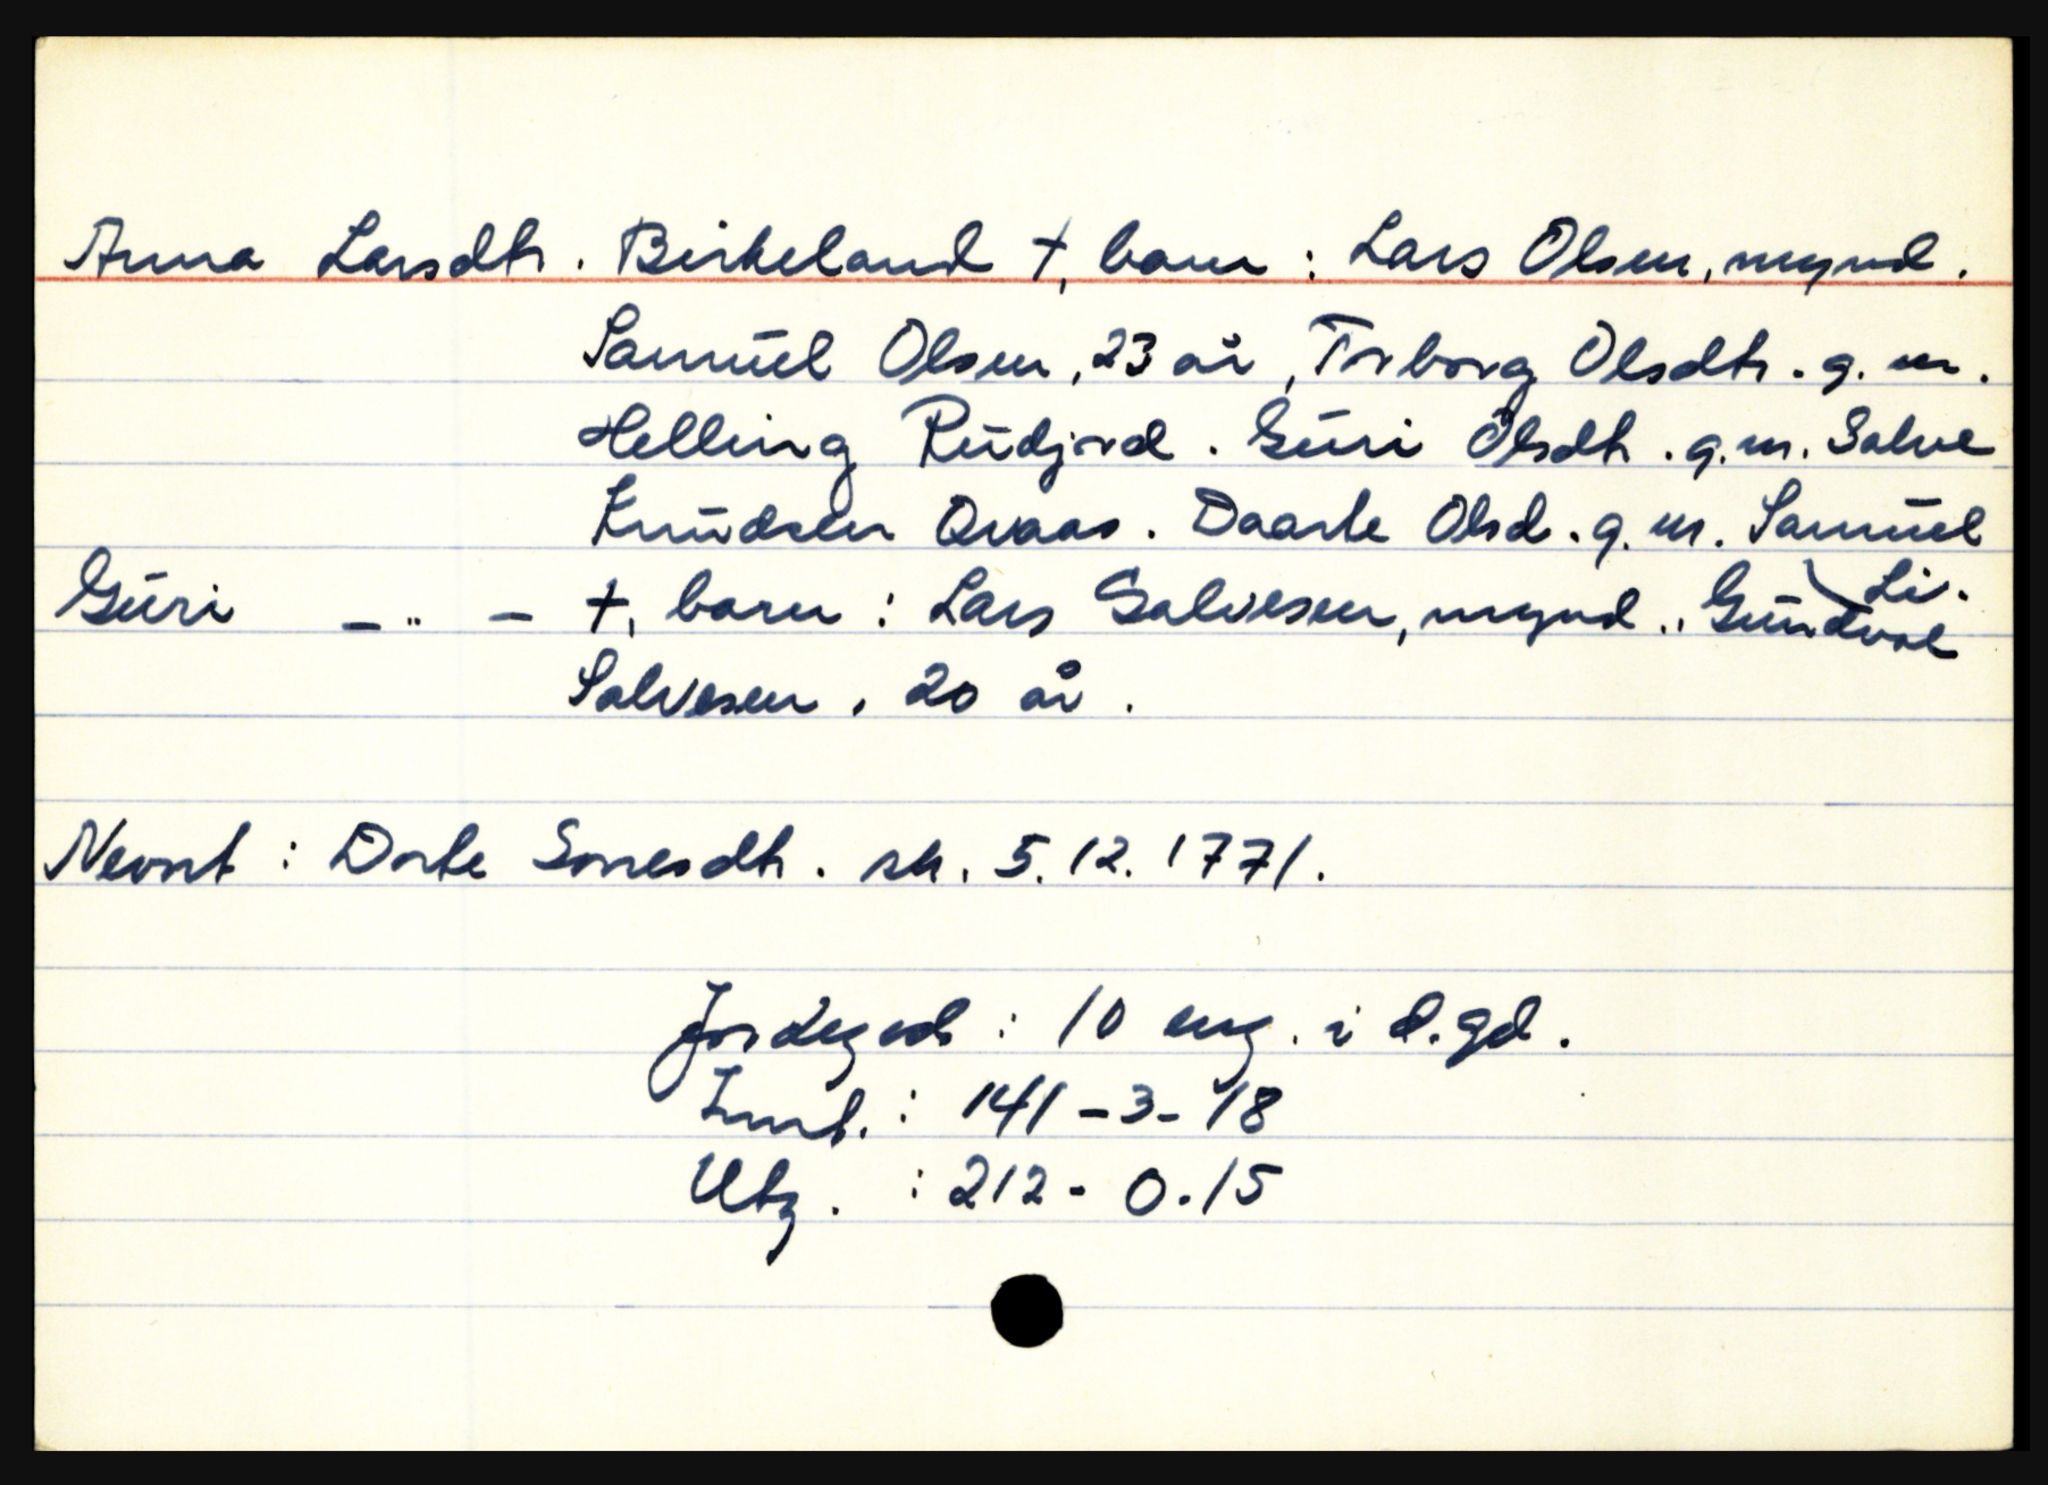 Anna Larsdtr. Birkeland †, barn : Lars Olsen, mynd.
Samuel Olsen, 23 år, Torborg Olsdtr. g. m.
Helling Rudjord. Guri Olsdtr. g.m. Salve
Knudsen Qvaas. Daarte Olsd. g. m. Samuel
Li.
Guri - " - †, barn : Lars Salvesen, mynd., Gundval
Salvesen, 20 år.
Nevnt : Dorte Sonesdtr. sk. 5.12.1771.
Jordegods : 10 eng. i d. gd.
: 141-3-18
Utg. : 212-0-15